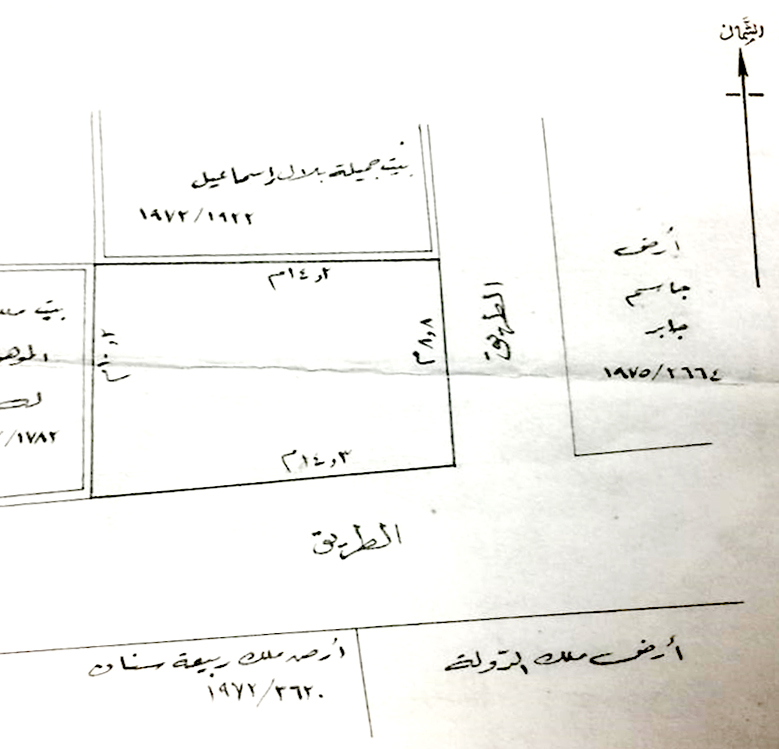 الشمال
بيت جميلة بلال إسماعيل
١٩٧٢/١٩٢٢
١٤٫٢م
٨٫٨م
١٤٫٣م
١٠٫٢م
الطريق
أرض
جاسم
جابر
١٩٧٥/٢٦٦٤
بيت
لك
/١٧٨٢
الطريق
أرض ملك ربيعة سنان
١٩٧٢/٢٦٢٠
أرض ملك الدولة